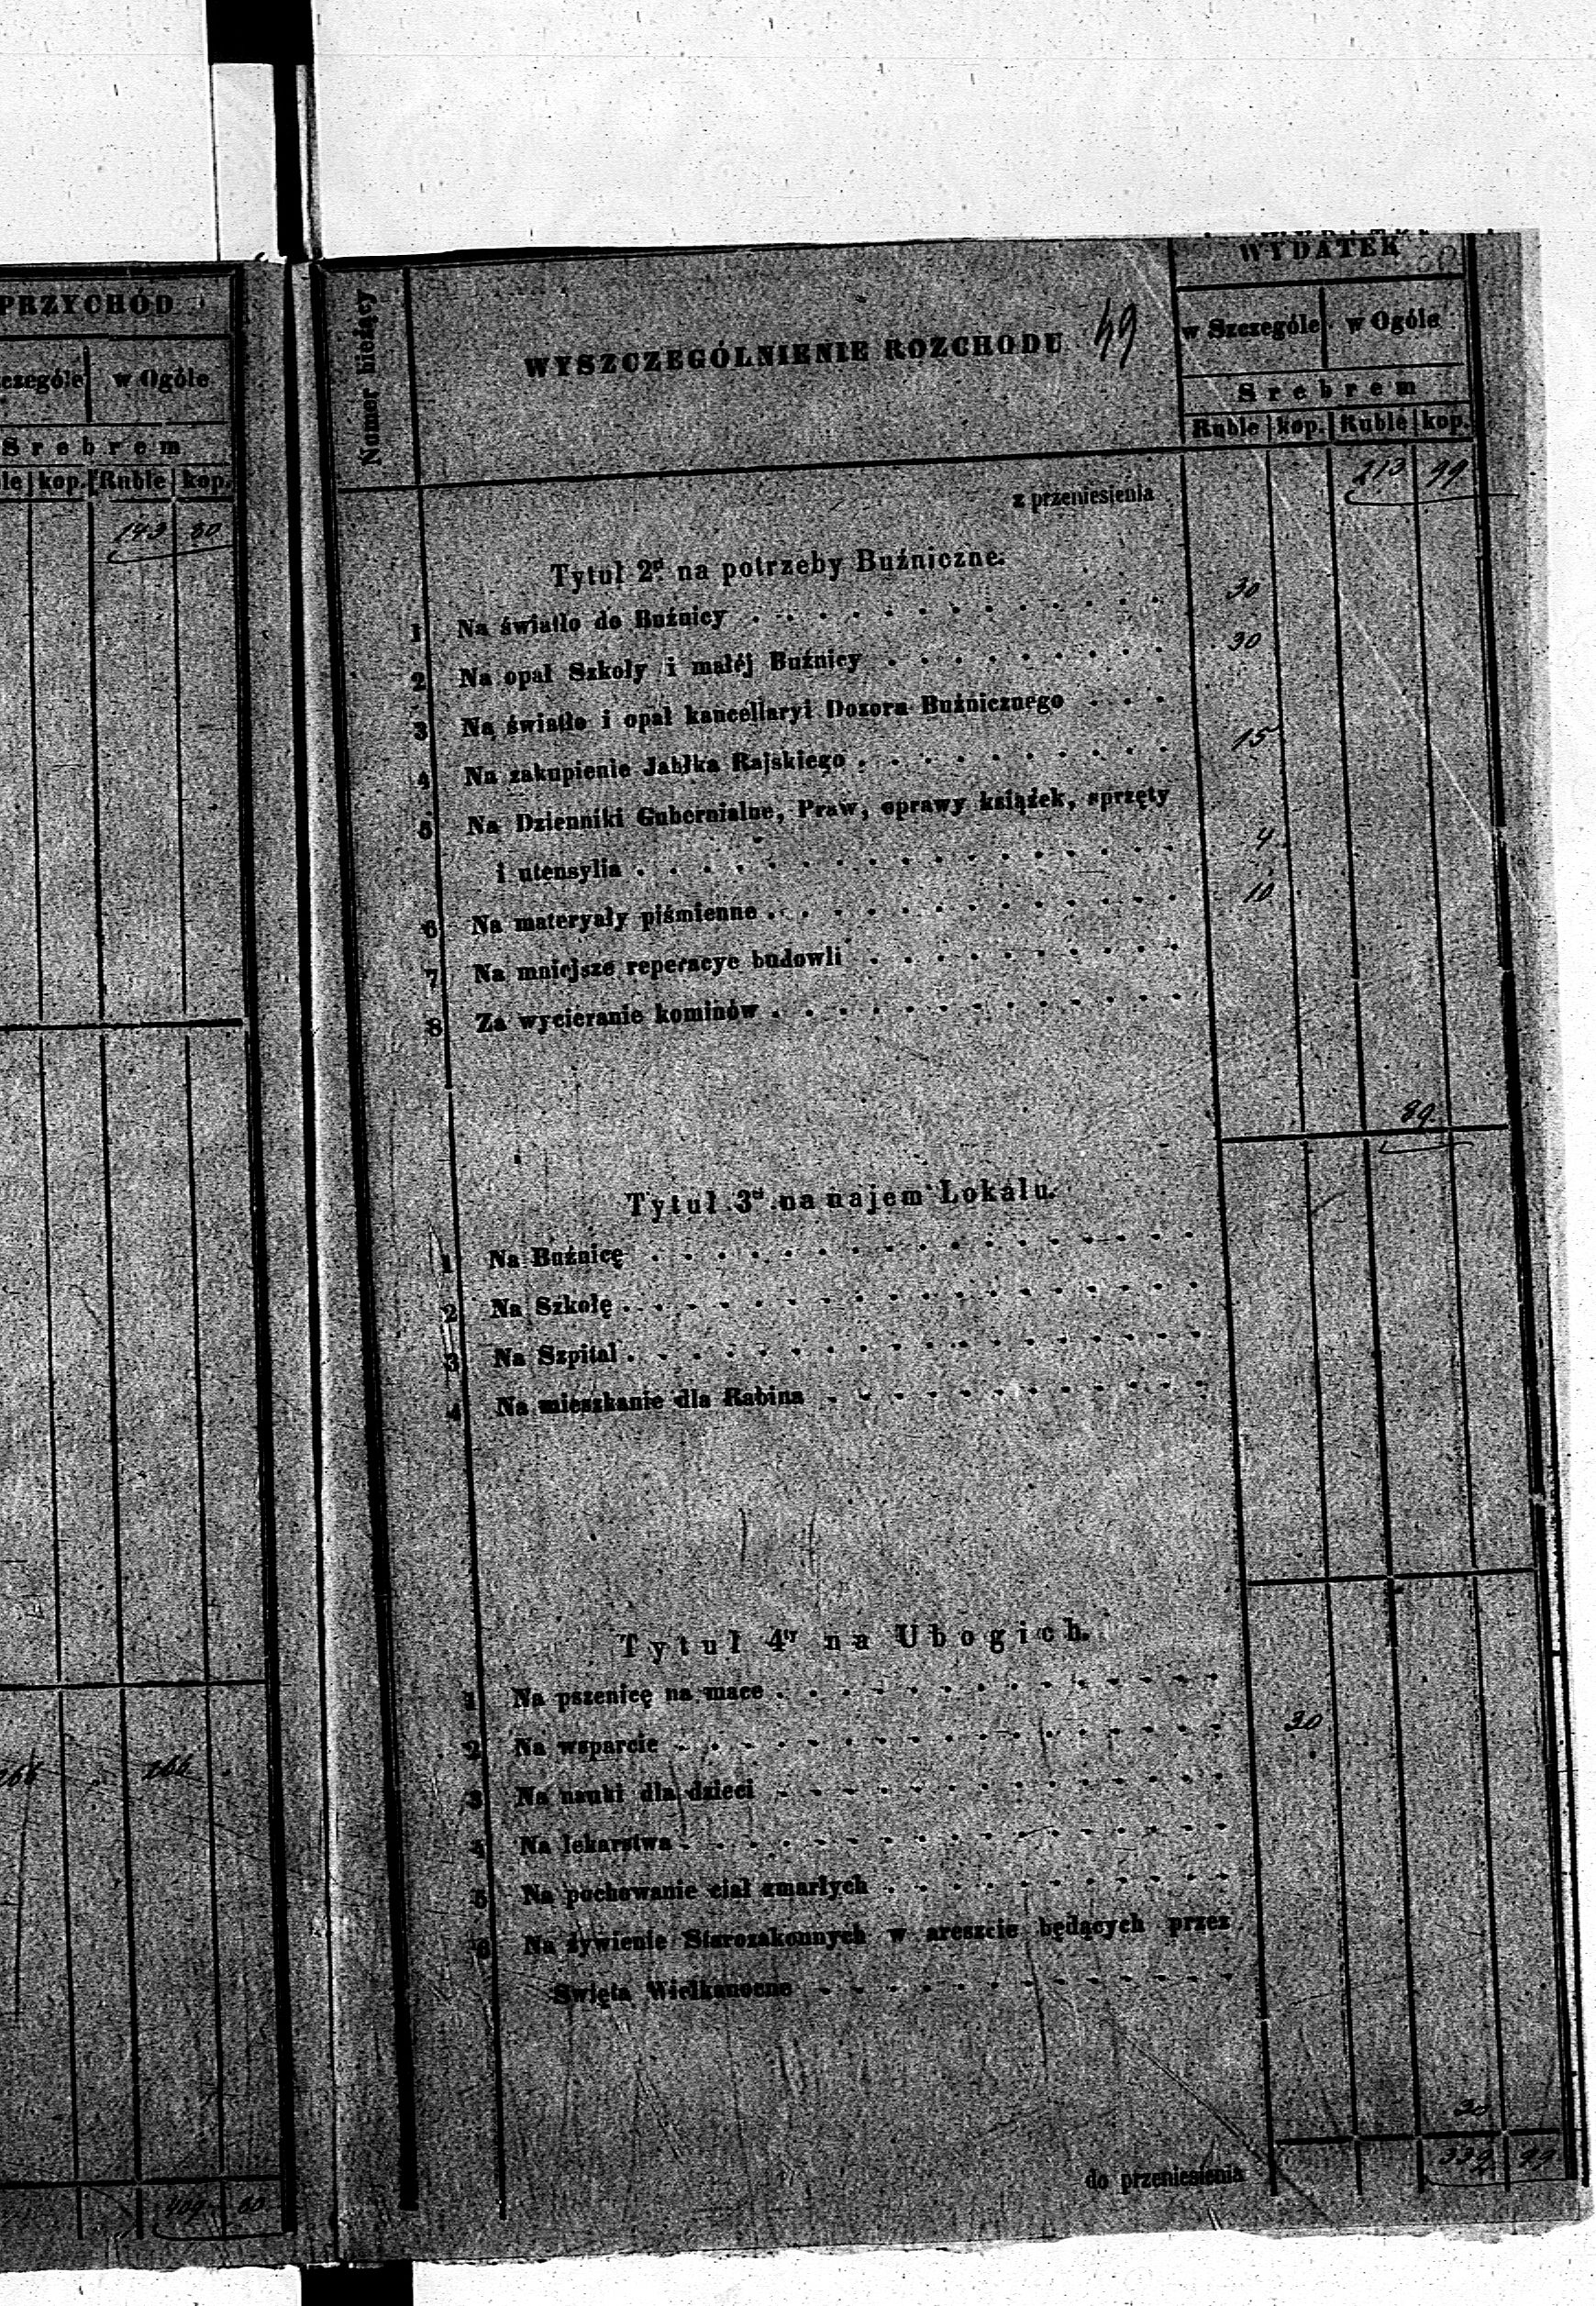 PRZYCHÓD
w Ogóle
Srebrem
kop. Ruble kop.
143 80
266 266
409 80
Numer bieżący
WYSZCZEGÓLNIENIE ROZCHODU
49
WYDATEK
w Szczególe w Ogóle
Srebrem
Ruble kop. Ruble kop.
z przeniesienia 213 99
Tytuł 2gi na potrzeby Buźniczne.
1 Na światło do Buźnicy . . . 30
2 Na opał Szkoły i małéj Buźnicy . . . 30
3 Na światło i opał kancellaryi Dozoru Buźnicznego . . .
4 Na zakupienie Jabłka Rajskiego . . . 15
5 Na Dzienniki Gubernialne, Praw, oprawy książek, sprzęty
i utensylia . . . 4
6 Na materyały piśmienne . . . 10
7 Na mniejsze reperacye budowli . . .
8 Za wycieranie kominów . . .
89
Tytuł 3ci na najem Lokalu.
1 Na Buźnicę . . .
2 Na Szkołę . . .
3 Na Szpital . . .
4 Na mieszkanie dla Rabina . . .
Tytuł 4ty na Ubogich.
1 Na pszenicę na mace . . .
2 Na wsparcie . . . 30
3 Na nauki dla dzieci . . .
4 Na lekarstwa . . .
5 Na pochowanie ciał zmarłych . . .
6 Na żywienie Starozakonnych w areszcie będących przez
Święta Wielkanocne . . .
30
do przeniesienia 332 99